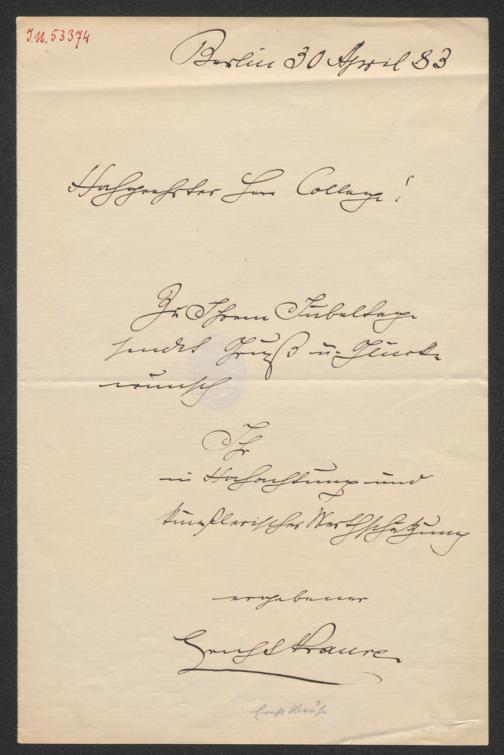 I.N. 53374
Berlin 30 April 83
Hochgeehrter Herr College!
Zu Ihrem Jubeltage
sendet Gruß u. Glück-
wunsch
Ihr
in Hochachtung und
künstlerischer Werthschätzung
ergebener
Ernst Krause
Ernst Krause